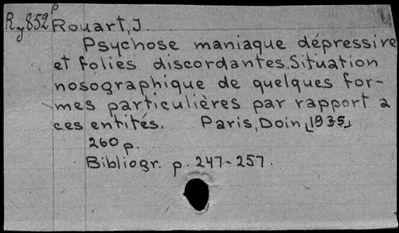 Ry852p Rouart, J.
Psychose maniaque dépressive
et folies discordantes. Situation
nosographique de quelques for-
mes particulières par rapport a
ces entités. Paris, Doin, [1935]
260 p.
Bibliogr. p. 247-257.